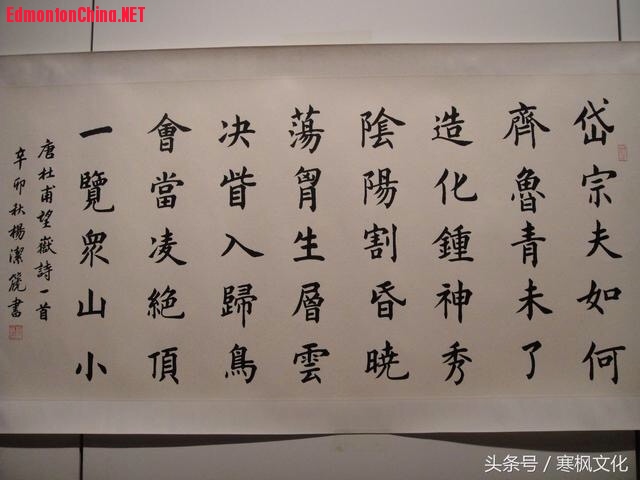 EdmontonChina.NET
岱宗夫如何
齊魯青未了
造化鍾神秀
陰陽割昏曉
蕩胷生層雲
决眥入歸鳥
會當凌絶頂
一覽衆山小
唐杜甫望嶽詩一首
辛卯秋楊潔麗書
头条号／寒枫文化